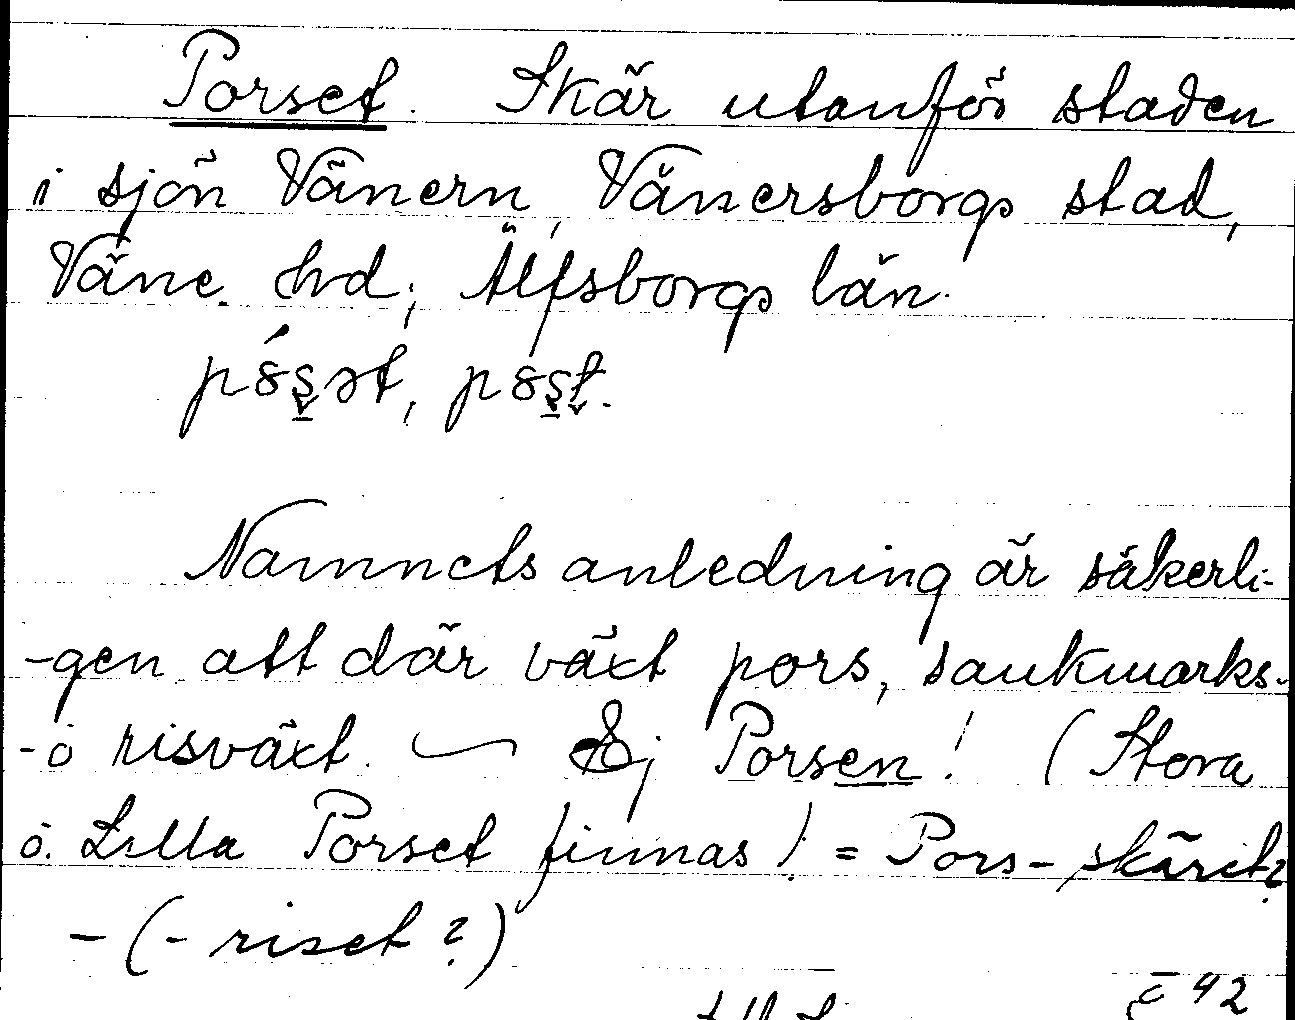 Porset. Skär utanför staden
i sjön Vänern, Vänersborgs stad,
Väne hd, Älfsborgs län.
Namnets anledning är säkerli-
-gen att där växt pors, sankmarks-
-o risväxt. Ej Porsen! (Stora
o. Lilla Porset finnas). = Pors-skäret?
-(-riset?)
42